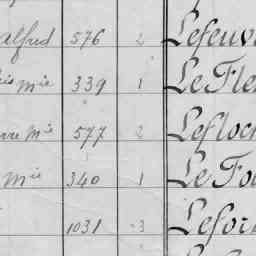 alfred 576 2 Lefeuv
Mie 339 1 Le Fle
Mie 577 2 Lefloc
Mie 340 1 Le Fo
1031 3